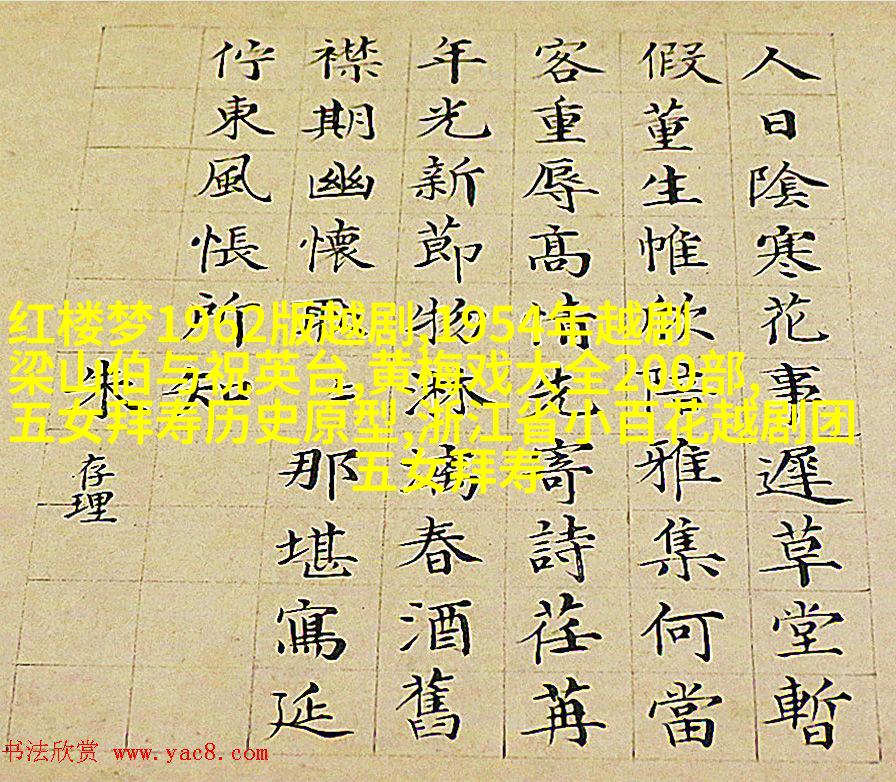 人日陰寒花事遲草堂暫
假董生帷欣陪雅集何當
客重辱髙情先寄詩荏苒
年光新節物淋漓春酒舊
襟期幽懷那堪寫延
佇東風悵所知
朱存理
红楼梦1962版越剧,1954年越剧
梁山伯与祝英台,黄梅戏大全200部,
五女拜寿历史原型,浙江省小百花越剧团
五女拜寿
书法欣赏 www.yac8.com